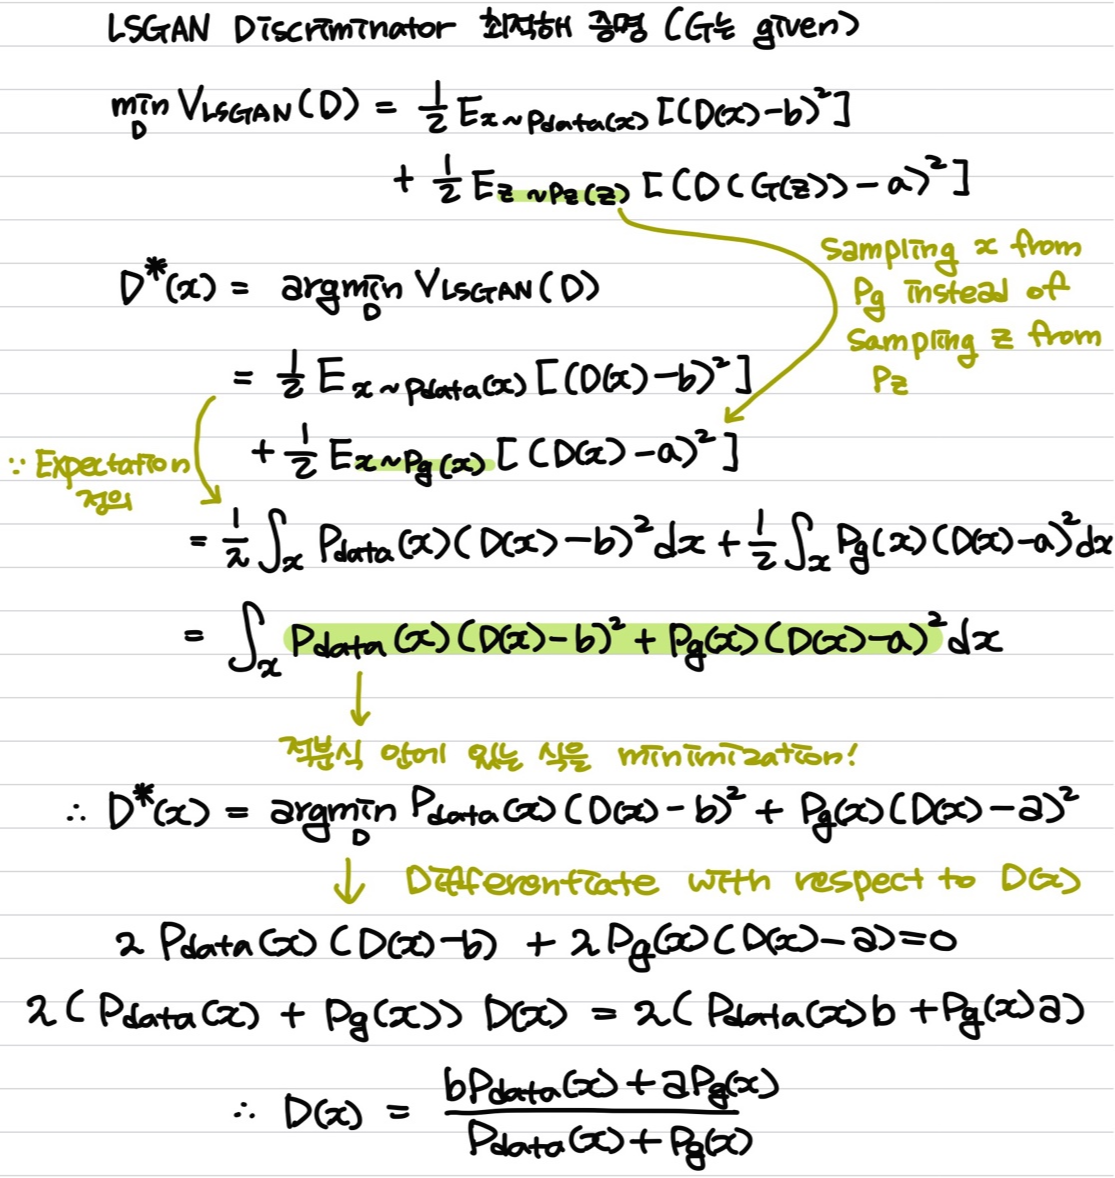 LSGAN Discriminator 최적해 증명 (G는 given)
min_D V_LSGAN(D) = 1/2 E_x~Pdata(x) [(D(x)-b)²]
+ 1/2 E_z~Pz(z) [(D(G(z))-a)²]
Sampling x from
Pg instead of
Sampling z from
Pz
D*(x) = argmin_D V_LSGAN(D)
= 1/2 E_x~Pdata(x) [(D(x)-b)²]
+ 1/2 E_x~Pg(x) [(D(x)-a)²]
∵ Expectation
정의
= 1/2 ∫_x Pdata(x)(D(x)-b)²dx + 1/2 ∫_x Pg(x)(D(x)-a)²dx
= ∫_x Pdata(x)(D(x)-b)² + Pg(x)(D(x)-a)² dx
적분식 안에 있는 식을 minimization!
∴ D*(x) = argmin_D Pdata(x)(D(x)-b)² + Pg(x)(D(x)-a)²
Differentiate with respect to D(x)
2 Pdata(x)(D(x)-b) + 2Pg(x)(D(x)-a)=0
2(Pdata(x) + Pg(x)) D(x) = 2(Pdata(x)b + Pg(x)a)
∴ D(x) = (bPdata(x)+aPg(x)) / (Pdata(x)+Pg(x))